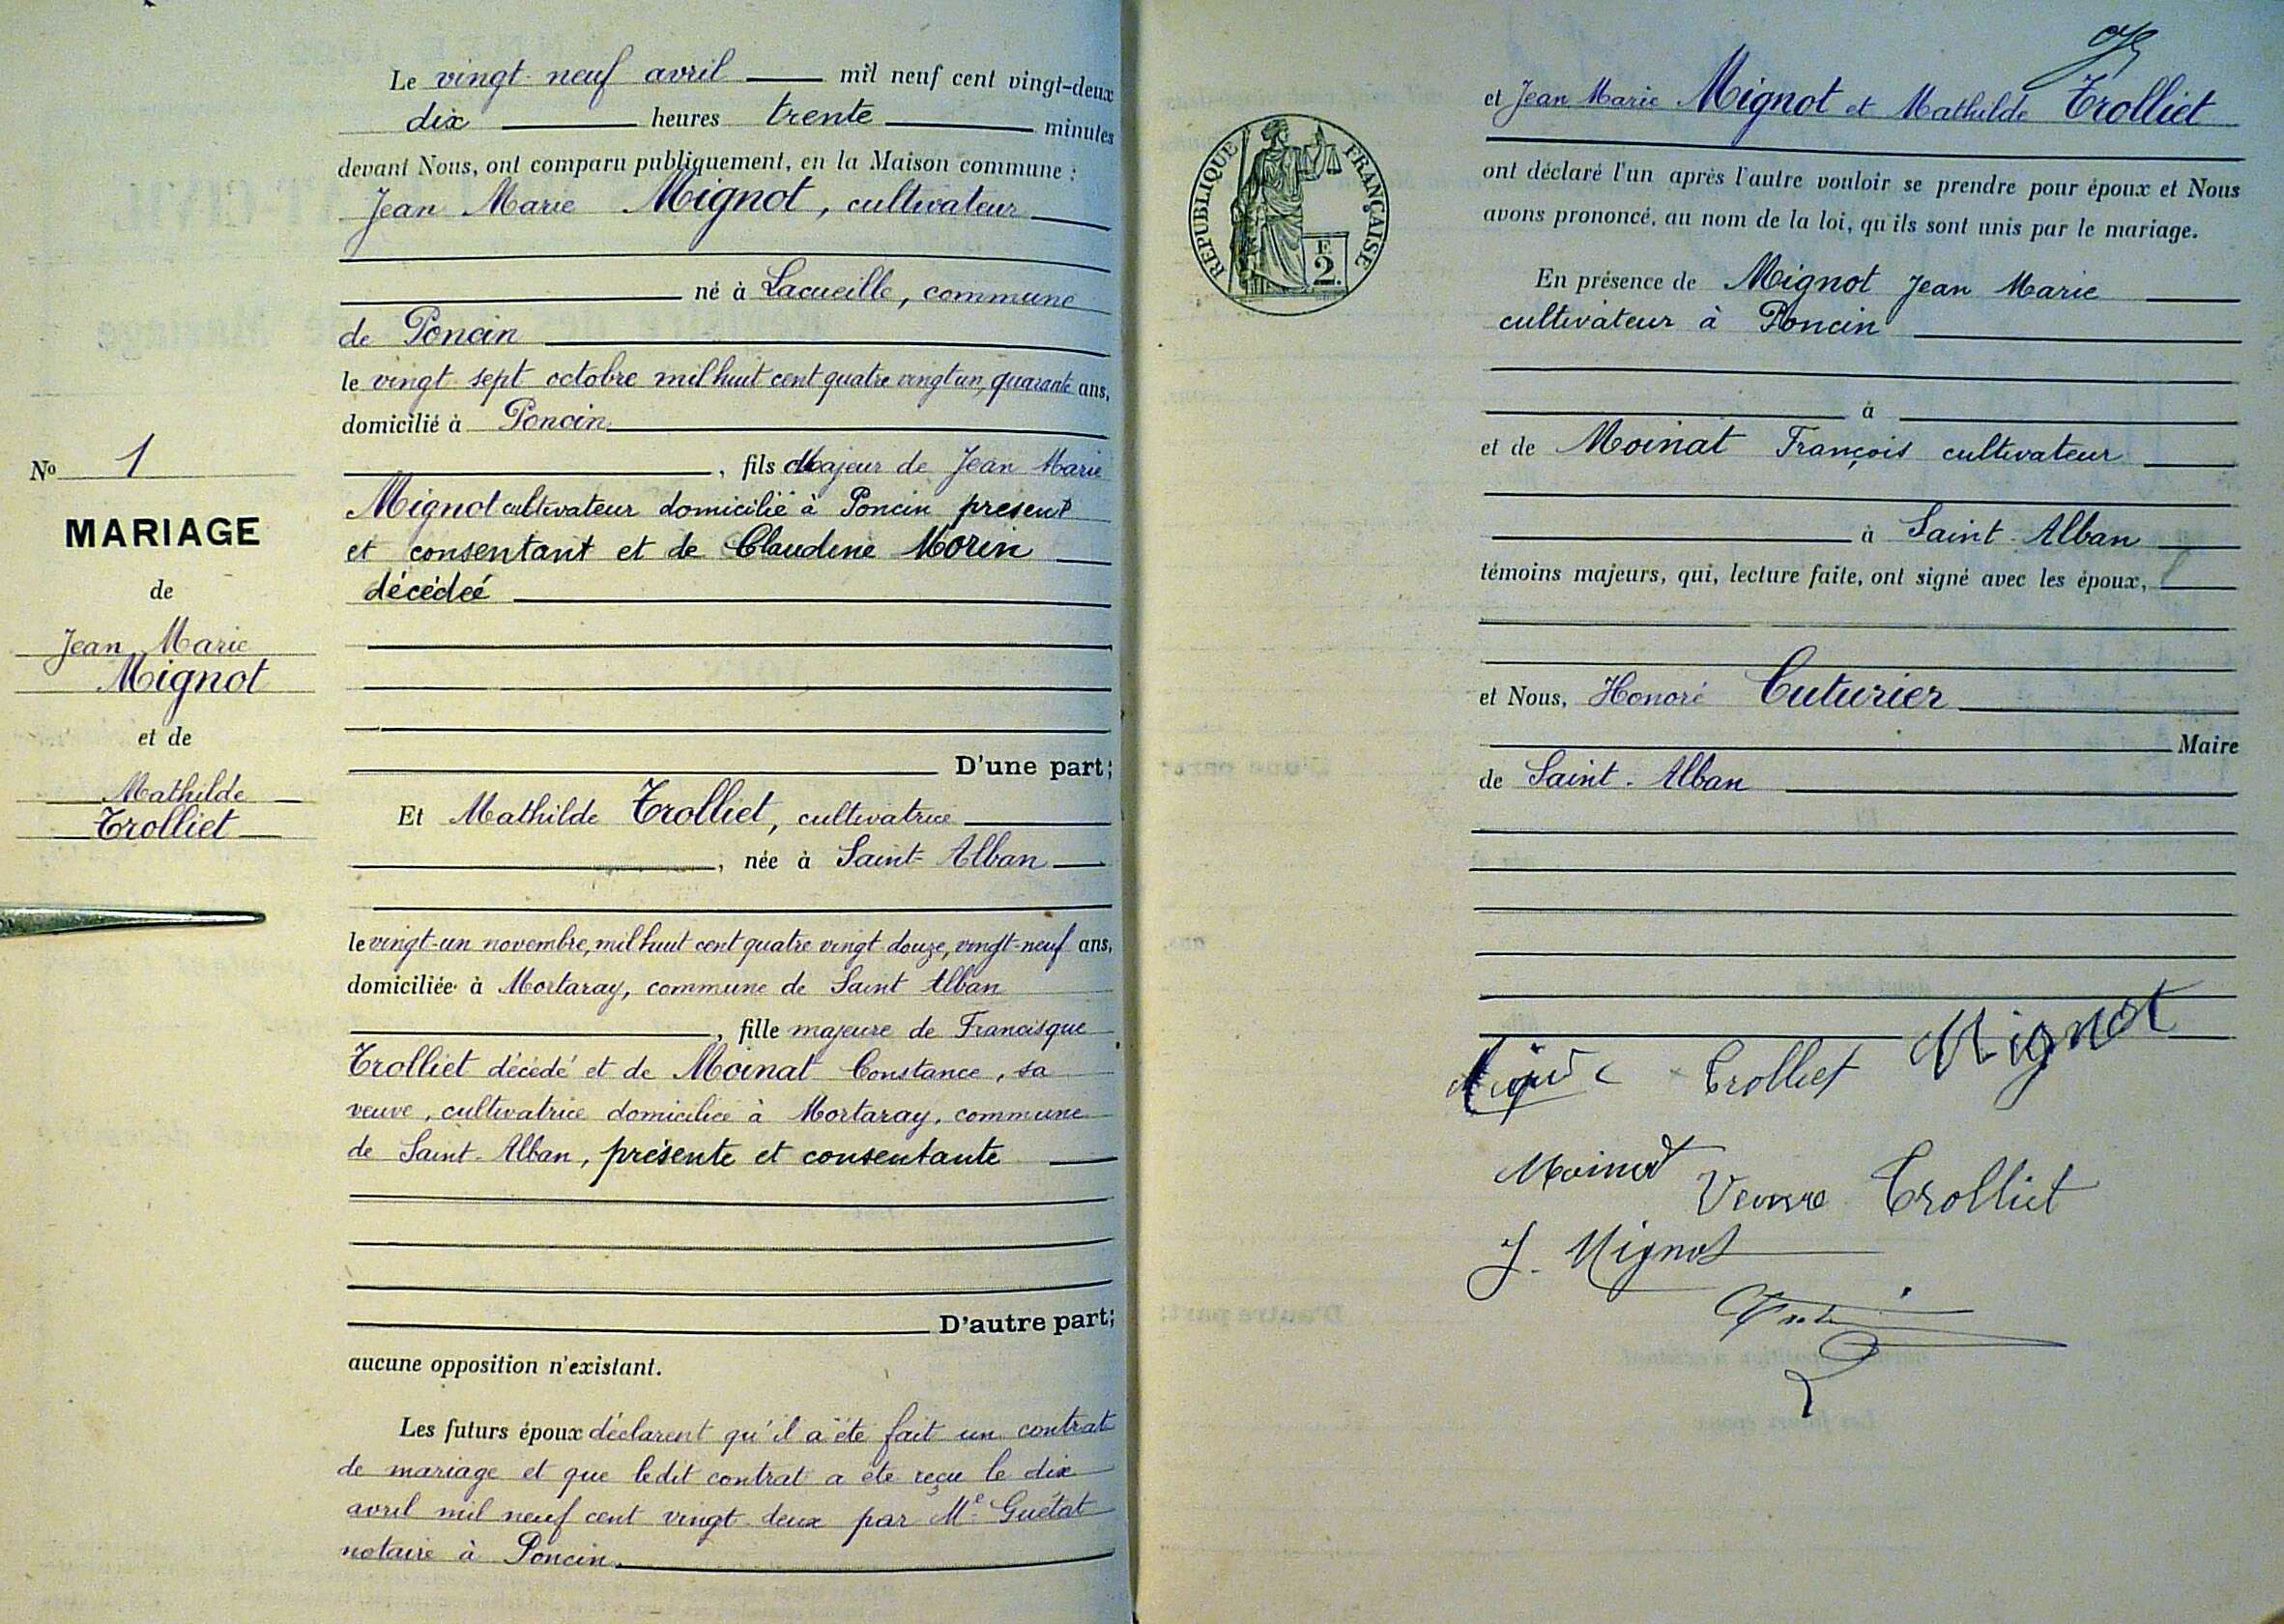 Le vingt-neuf avril mil neuf cent vingt-deux
dix heures trente minutes
devant Nous, ont comparu publiquement, en la Maison commune :
Jean Marie Mignot, cultivateur
né à Lacueille, commune
de Poncin
le vingt sept octobre mil huit cent quatre vingt un, quarante ans,
domicilié à Poncin
, fils Majeur de Jean Marie
Mignot cultivateur domicilié à Poncin présent
et consentant et de Claudine Morin
décédéé
D'une part;
Et Mathilde Trolliet, cultivatrice
, née à Saint-Alban
le vingt-un novembre, mil huit cent quatre vingt douze, vingt-neuf ans,
domiciliée à Mortaray, commune de Saint Alban
, fille majeure de Francisque
Trolliet décédé et de Moinat Constance, sa
veuve, cultivatrice domiciliée à Mortaray, commune
de Saint-Alban, présente et consentante
D'autre part;
aucune opposition n'existant.
Les futurs époux déclarent qu'il a été fait un contrat
de mariage et que ledit contrat a été reçu le dix
avril mil neuf cent vingt-deux par Me Guétat
notaire à Poncin
No 1
MARIAGE
de
Jean Marie
Mignot
et de
Mathilde
Trolliet
et Jean Marie Mignot et Mathilde Trolliet
ont déclaré l'un après l'autre vouloir se prendre pour époux et Nous
avons prononcé, au nom de la loi, qu'ils sont unis par le mariage.
En présence de Mignot Jean Marie
cultivateur à Poncin
à
et de Moinat François cultivateur
à Saint-Alban
témoins majeurs, qui, lecture faite, ont signé avec les époux,
et Nous, Honoré Cuturier
Maire
de Saint-Alban
RÉPUBLIQUE FRANÇAISE
F
2.
Trolliet Mignot
Moinat
Veuve Trolliet
J. Mignot